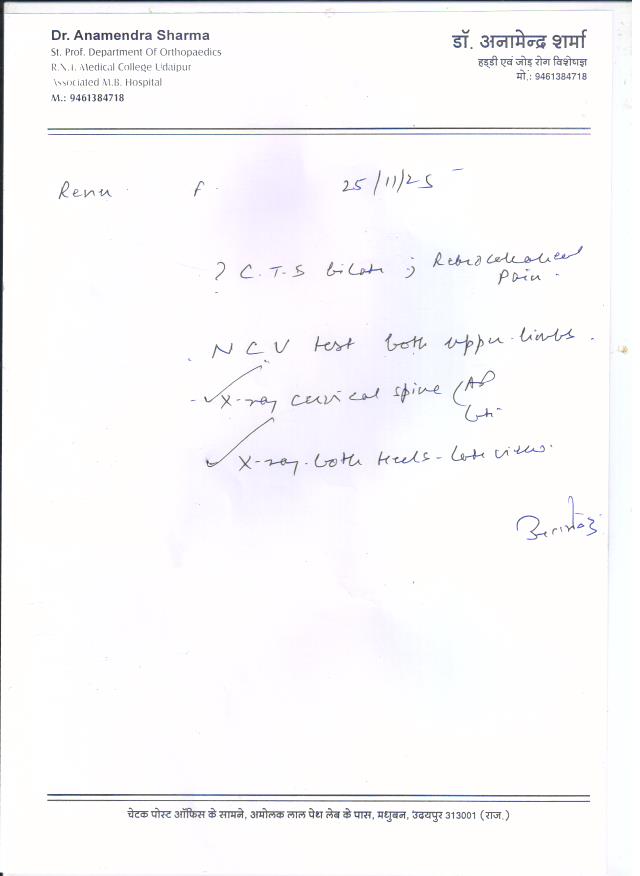 Dr. Anamendra Sharma
St. Prof. Department Of Orthopaedics
R.N.T. Medical College Udaipur
Associated M.B. Hospital
M.: 9461384718
डॉ. अनामेन्द्र शर्मा
हड्डी एवं जोड़ रोग विशेषज्ञ
मो.: 9461384718
Renu F. 25/11/25
? C.T.S bilat ; Retrocalcaneal
Pain.
NCV test both upper limbs.
X-ray cervical spine (AP
Lat.
X-ray both heels - Late view.
चेटक पोस्ट ऑफिस के सामने, अमोलक लाल पेथ लेब के पास, मधुबन, उदयपुर 313001 (राज.)